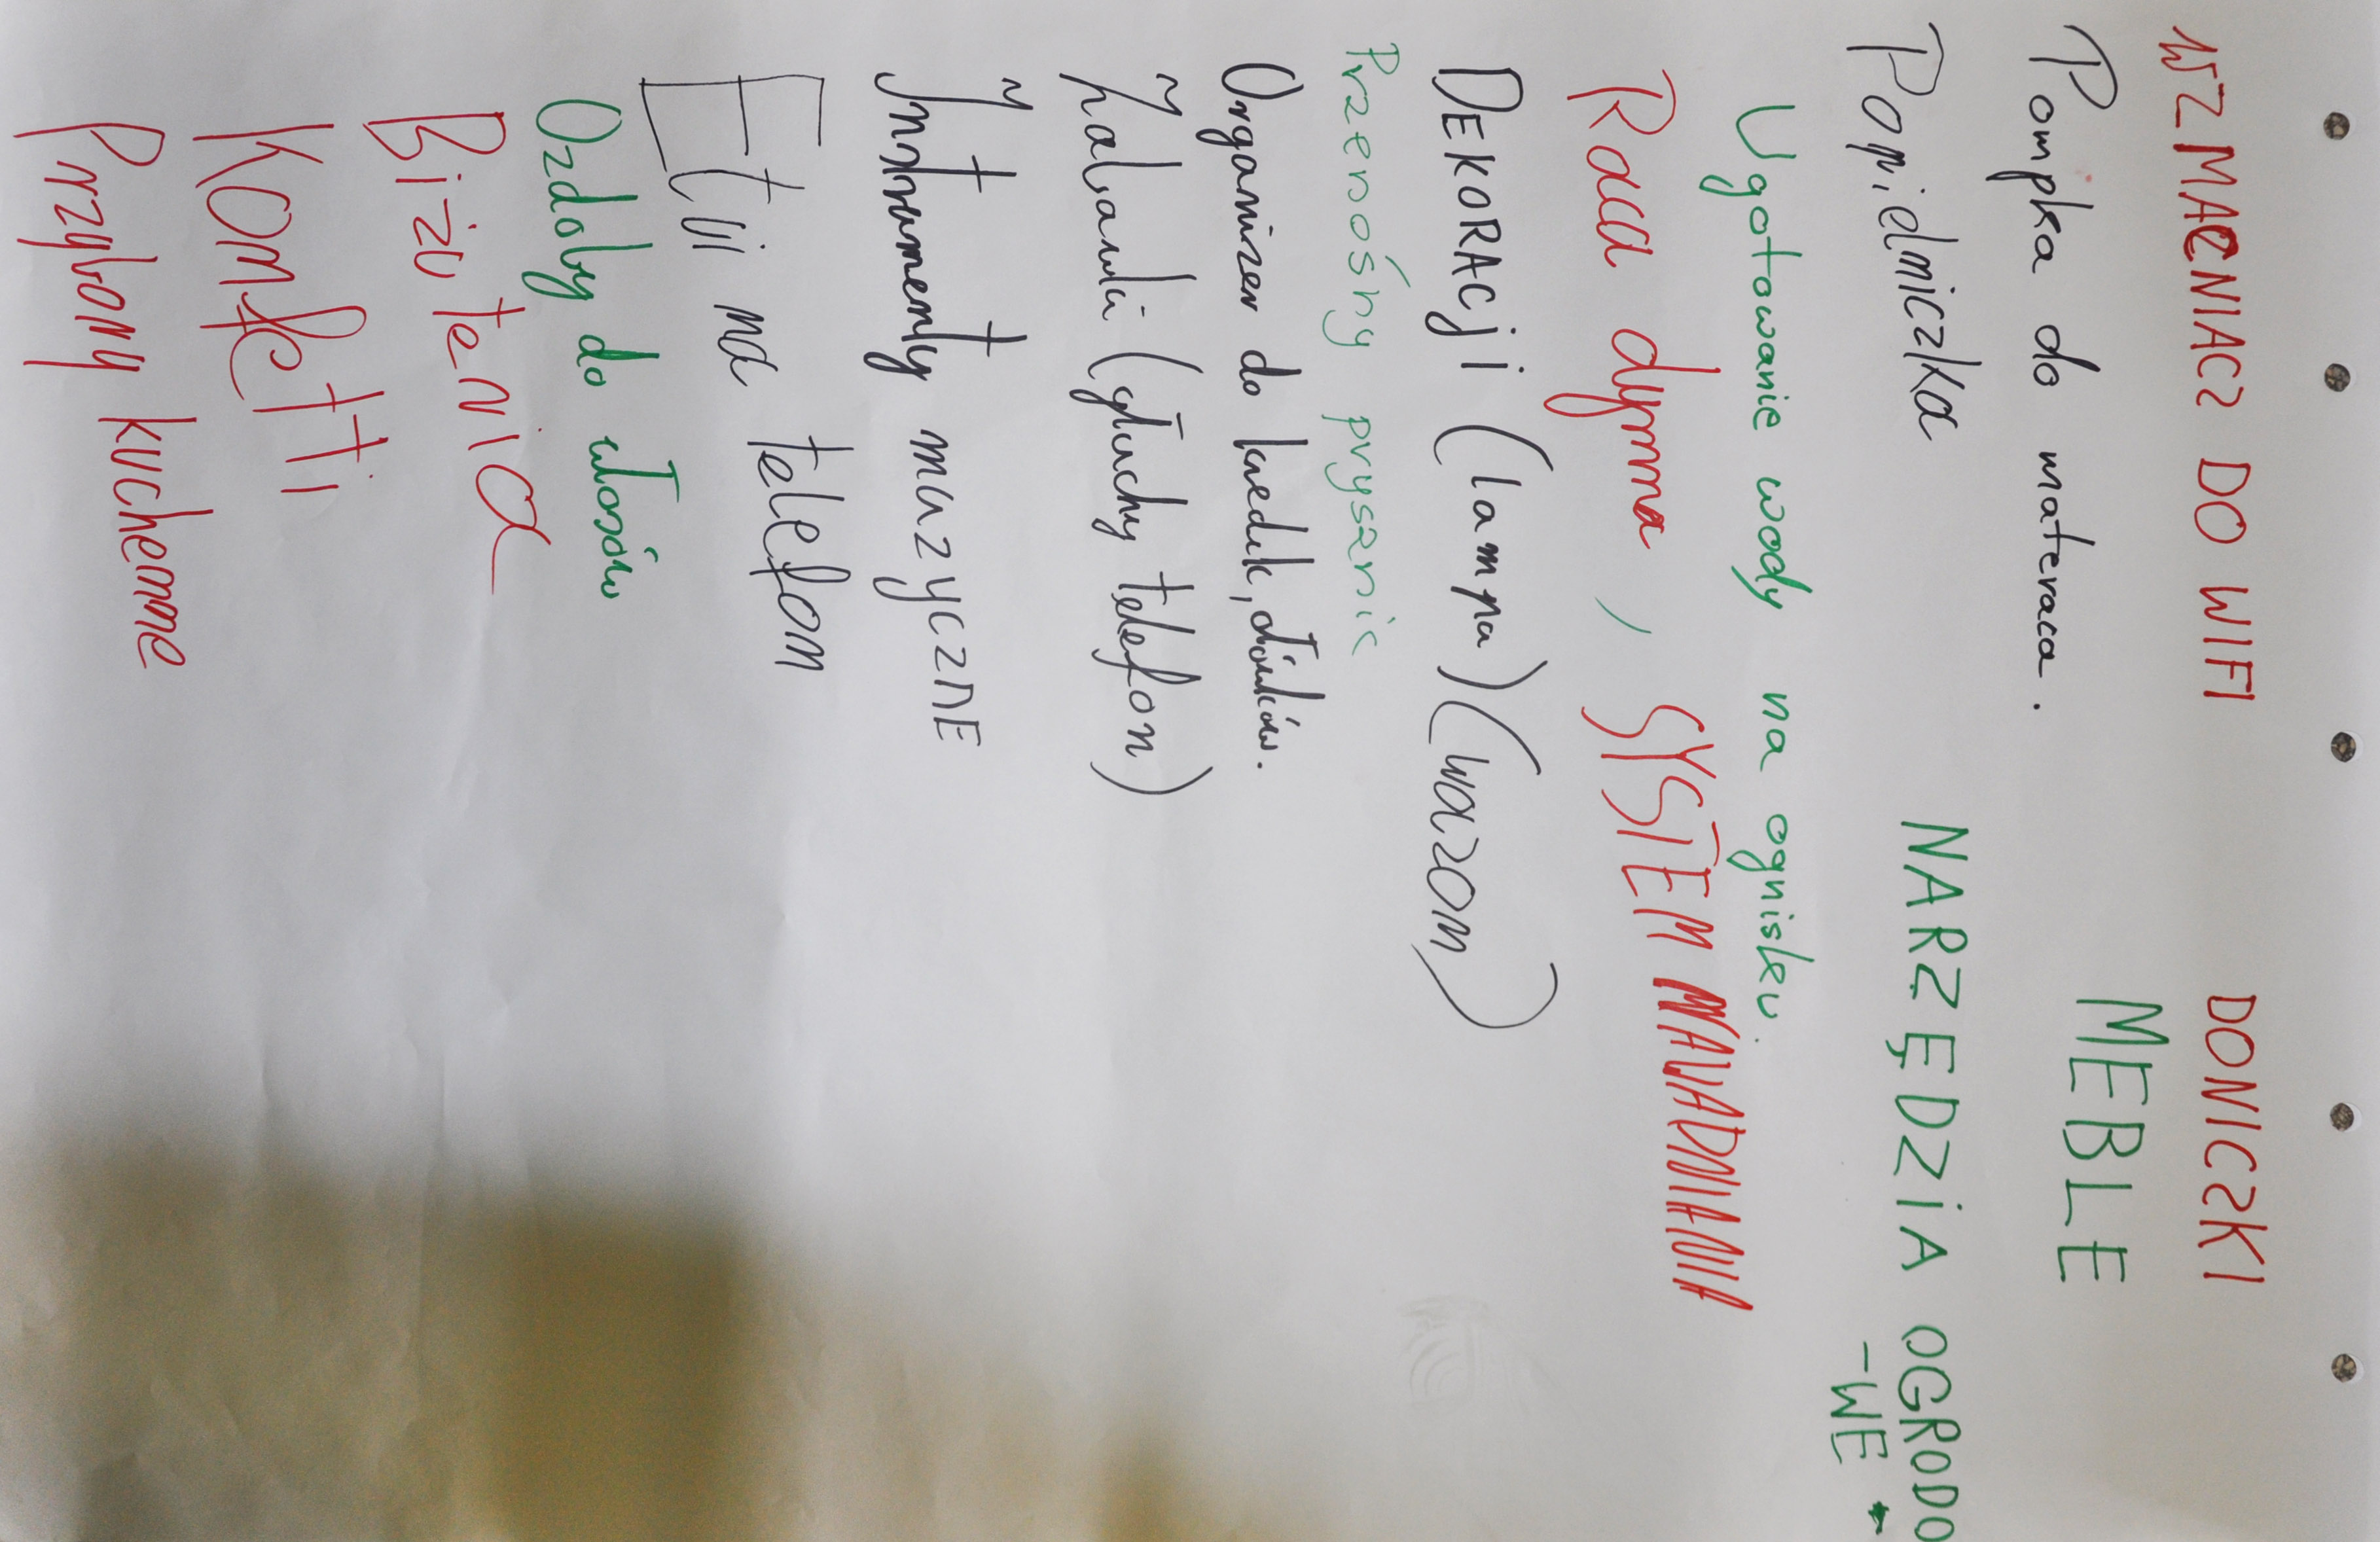 WZMACNIACZ DO WIFI DONICZKI
Pompka do materaca. MEBLE
Popielniczka NARZĘDZiA OGRODO
-WE
Ugotowanie wody na ognisku.
Raca dymna, SYSTEM NAWADNIANIA
DEKORACji (lampa) (wazon)
Przenośny prysznic
Organizer do kredek, ołówków.
Zabawki (głuchy telefon)
Instrumenty muzyczne
Etui na telefon
Ozdoby do włosów
Bizuteria
Konfetti
Przybory kuchenne